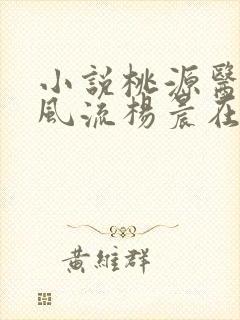 小說桃源醫
風流楊晨在
黃維群